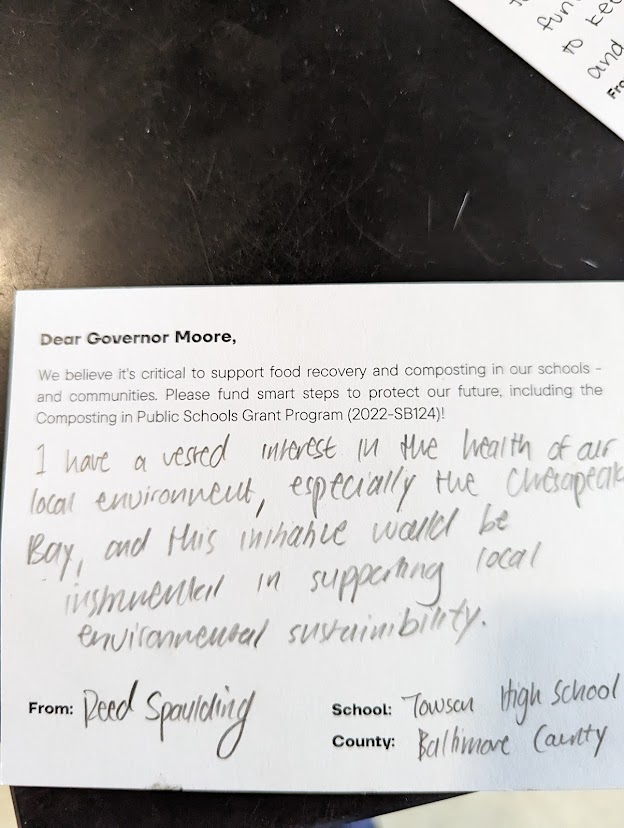 fun
to kee
and
Fro
Dear Governor Moore,
We believe it's critical to support food recovery and composting in our schools -
and communities. Please fund smart steps to protect our future, including the
Composting in Public Schools Grant Program (2022-SB124)!
I have a vested interest in the health of our
local environment, especially the Chesapeak
Bay, and this initiative would be
instrumental in supporting local
environmental sustainibility.
From: Reed Spaulding
School: Towson High School
County: Baltimore County